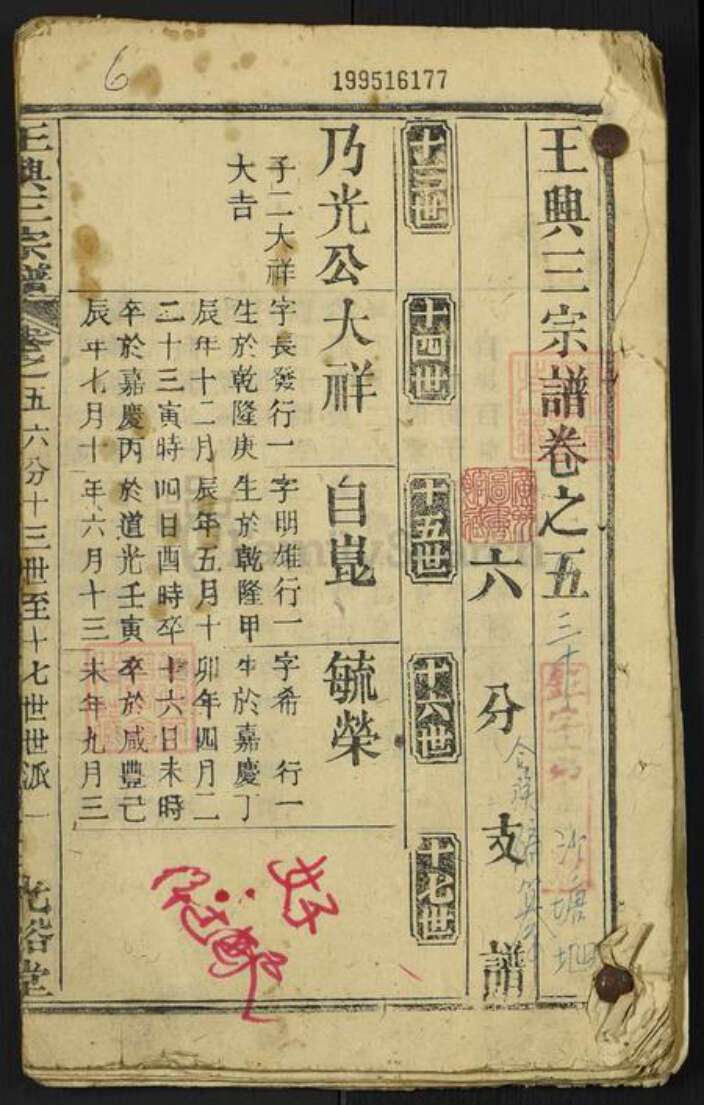 6
199516177
王興三宗譜卷之五
三十
沙塘
六分支譜
十三世
十四世
十五世
十六世
十七世
乃光公
子二大祥
大吉
大祥
字長發行一
生於乾隆庚
辰年十二月
二十三寅時
卒於嘉慶丙
辰年七月十
自崑
字明雄行一
生於乾隆甲
辰年五月十
四日酉時卒
於道光壬寅
年六月十三
毓榮
字希 行一
生於嘉慶丁
卯年四月二
十六日未時
卒於咸豐己
未年九月三
好
王興三宗譜
卷之五六分十三世至十七世世派一
光裕堂